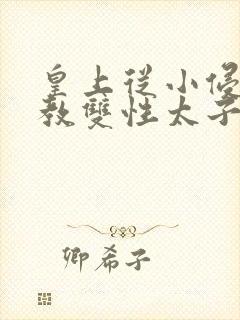 皇上從小侵
教雙性太子
卿希子